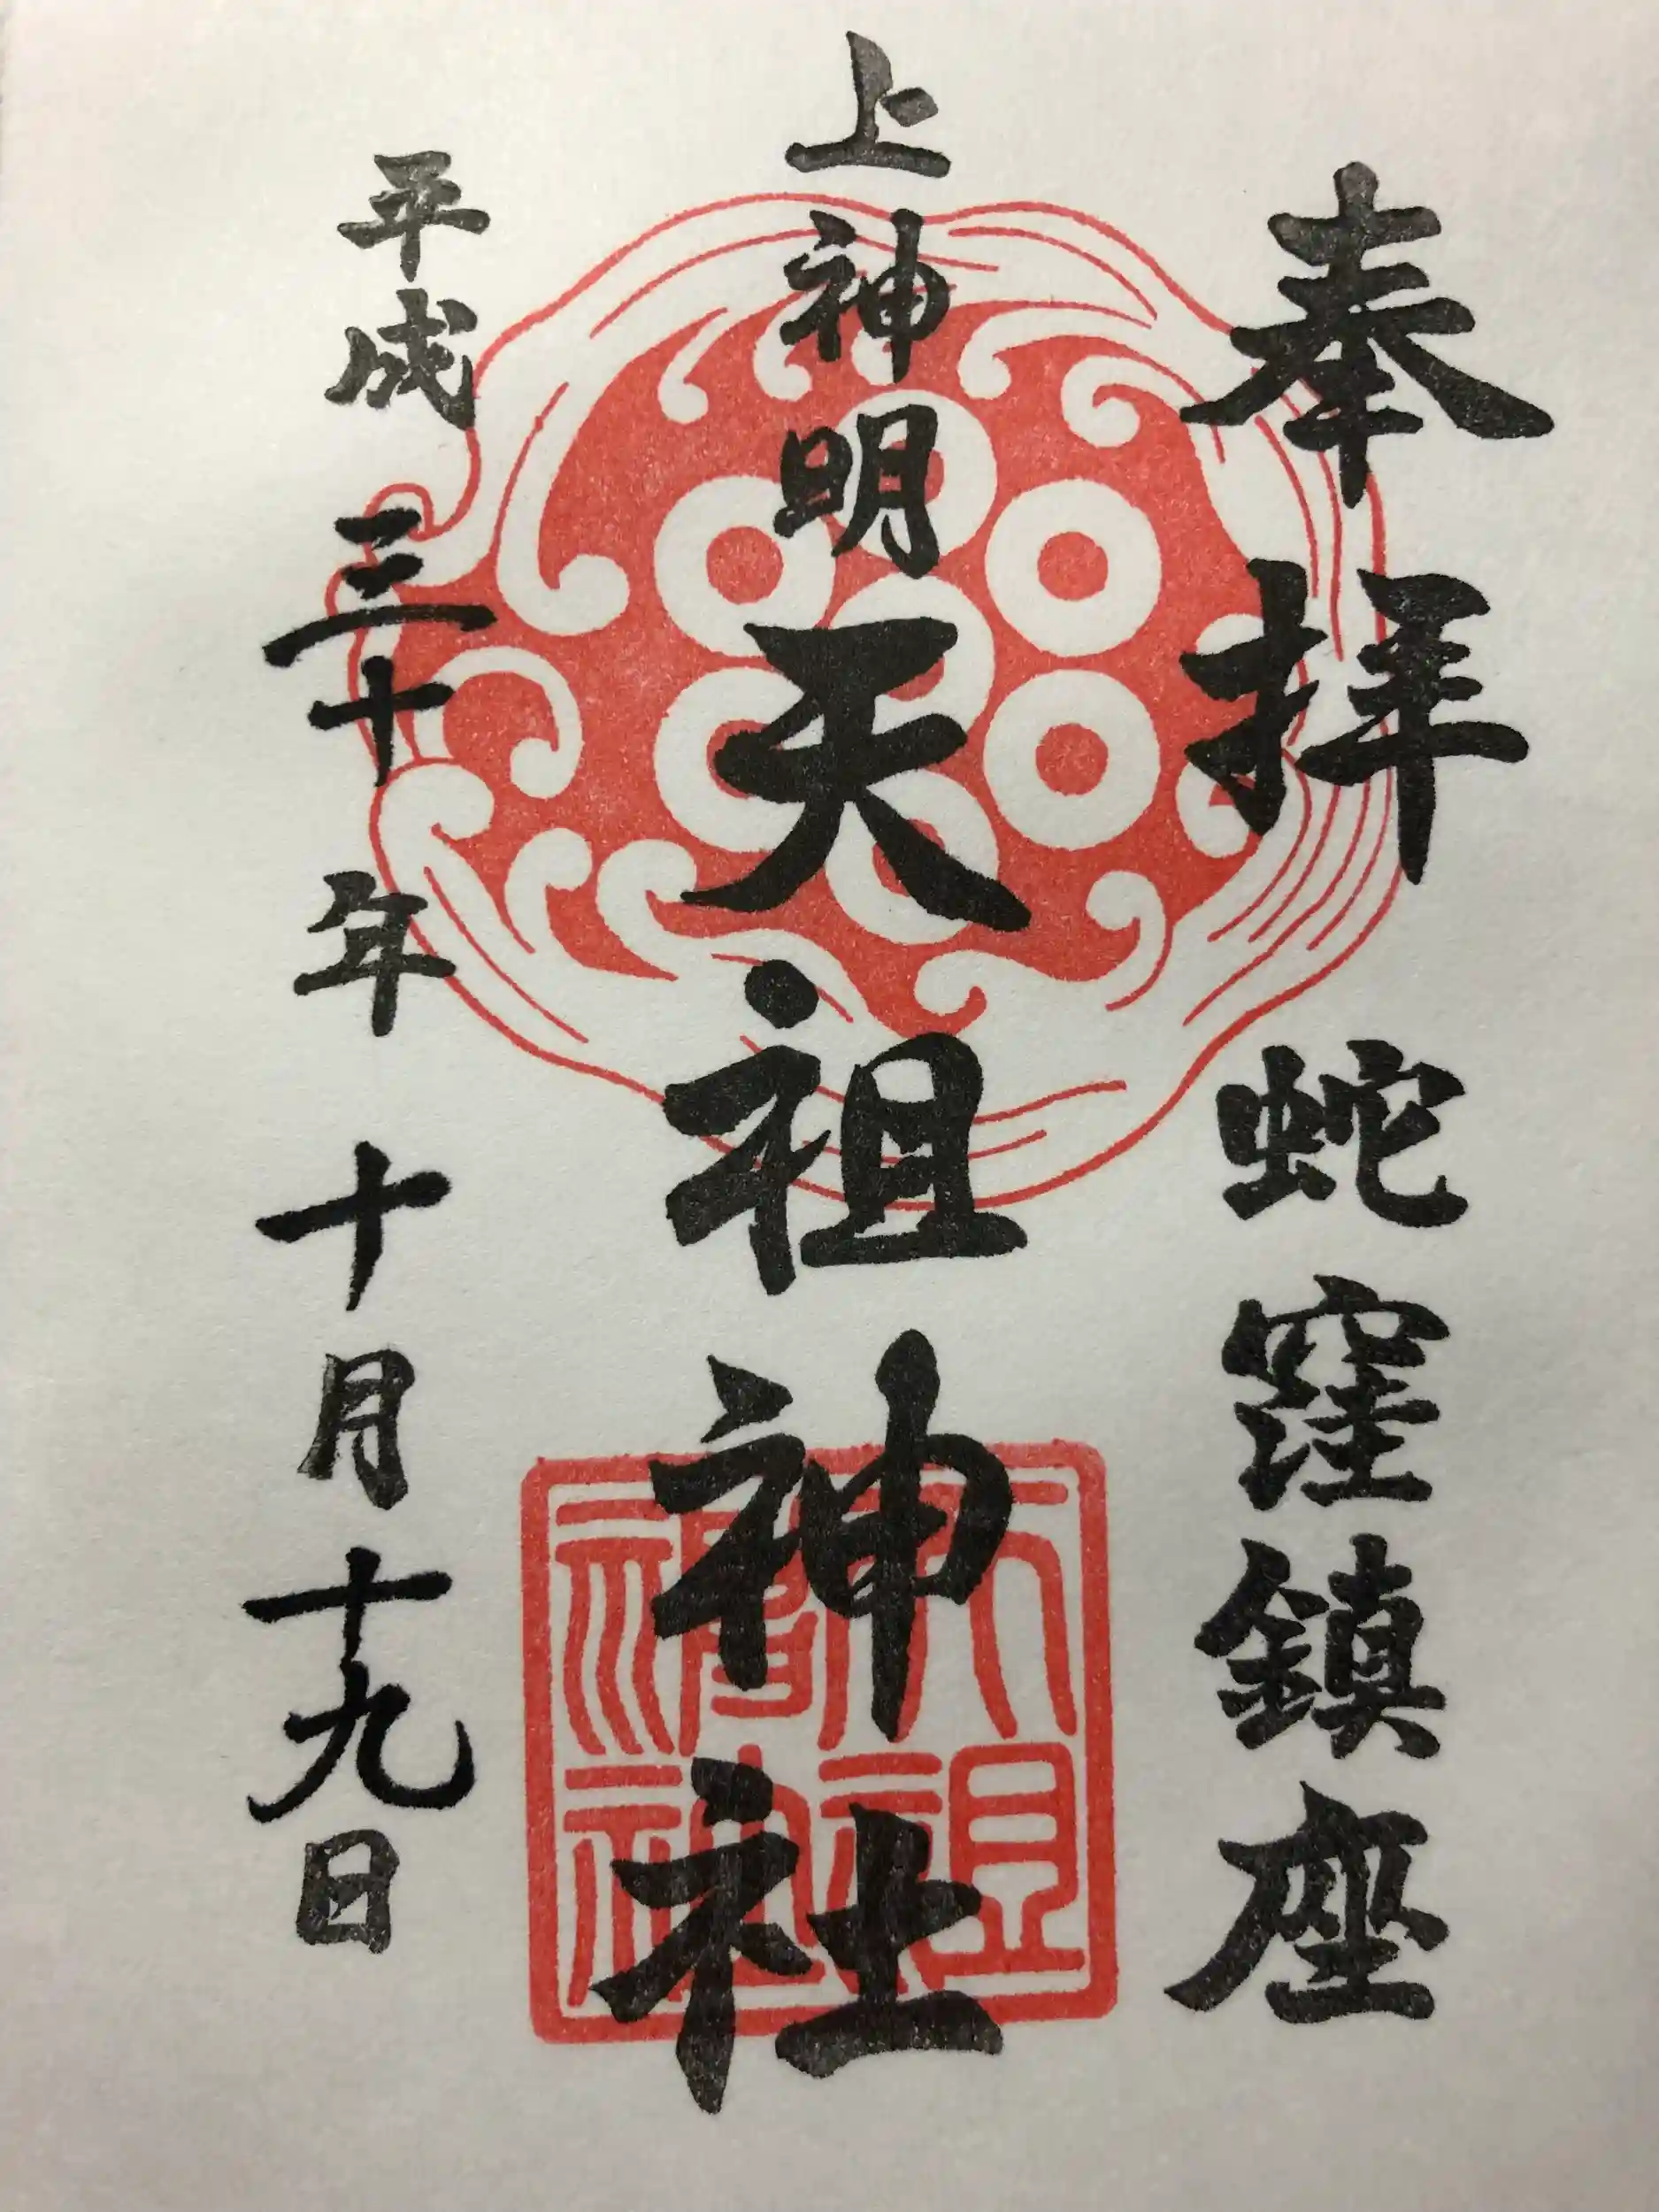 奉拝 蛇窪鎮座
上神明天祖神社
平成三十年十月十九日